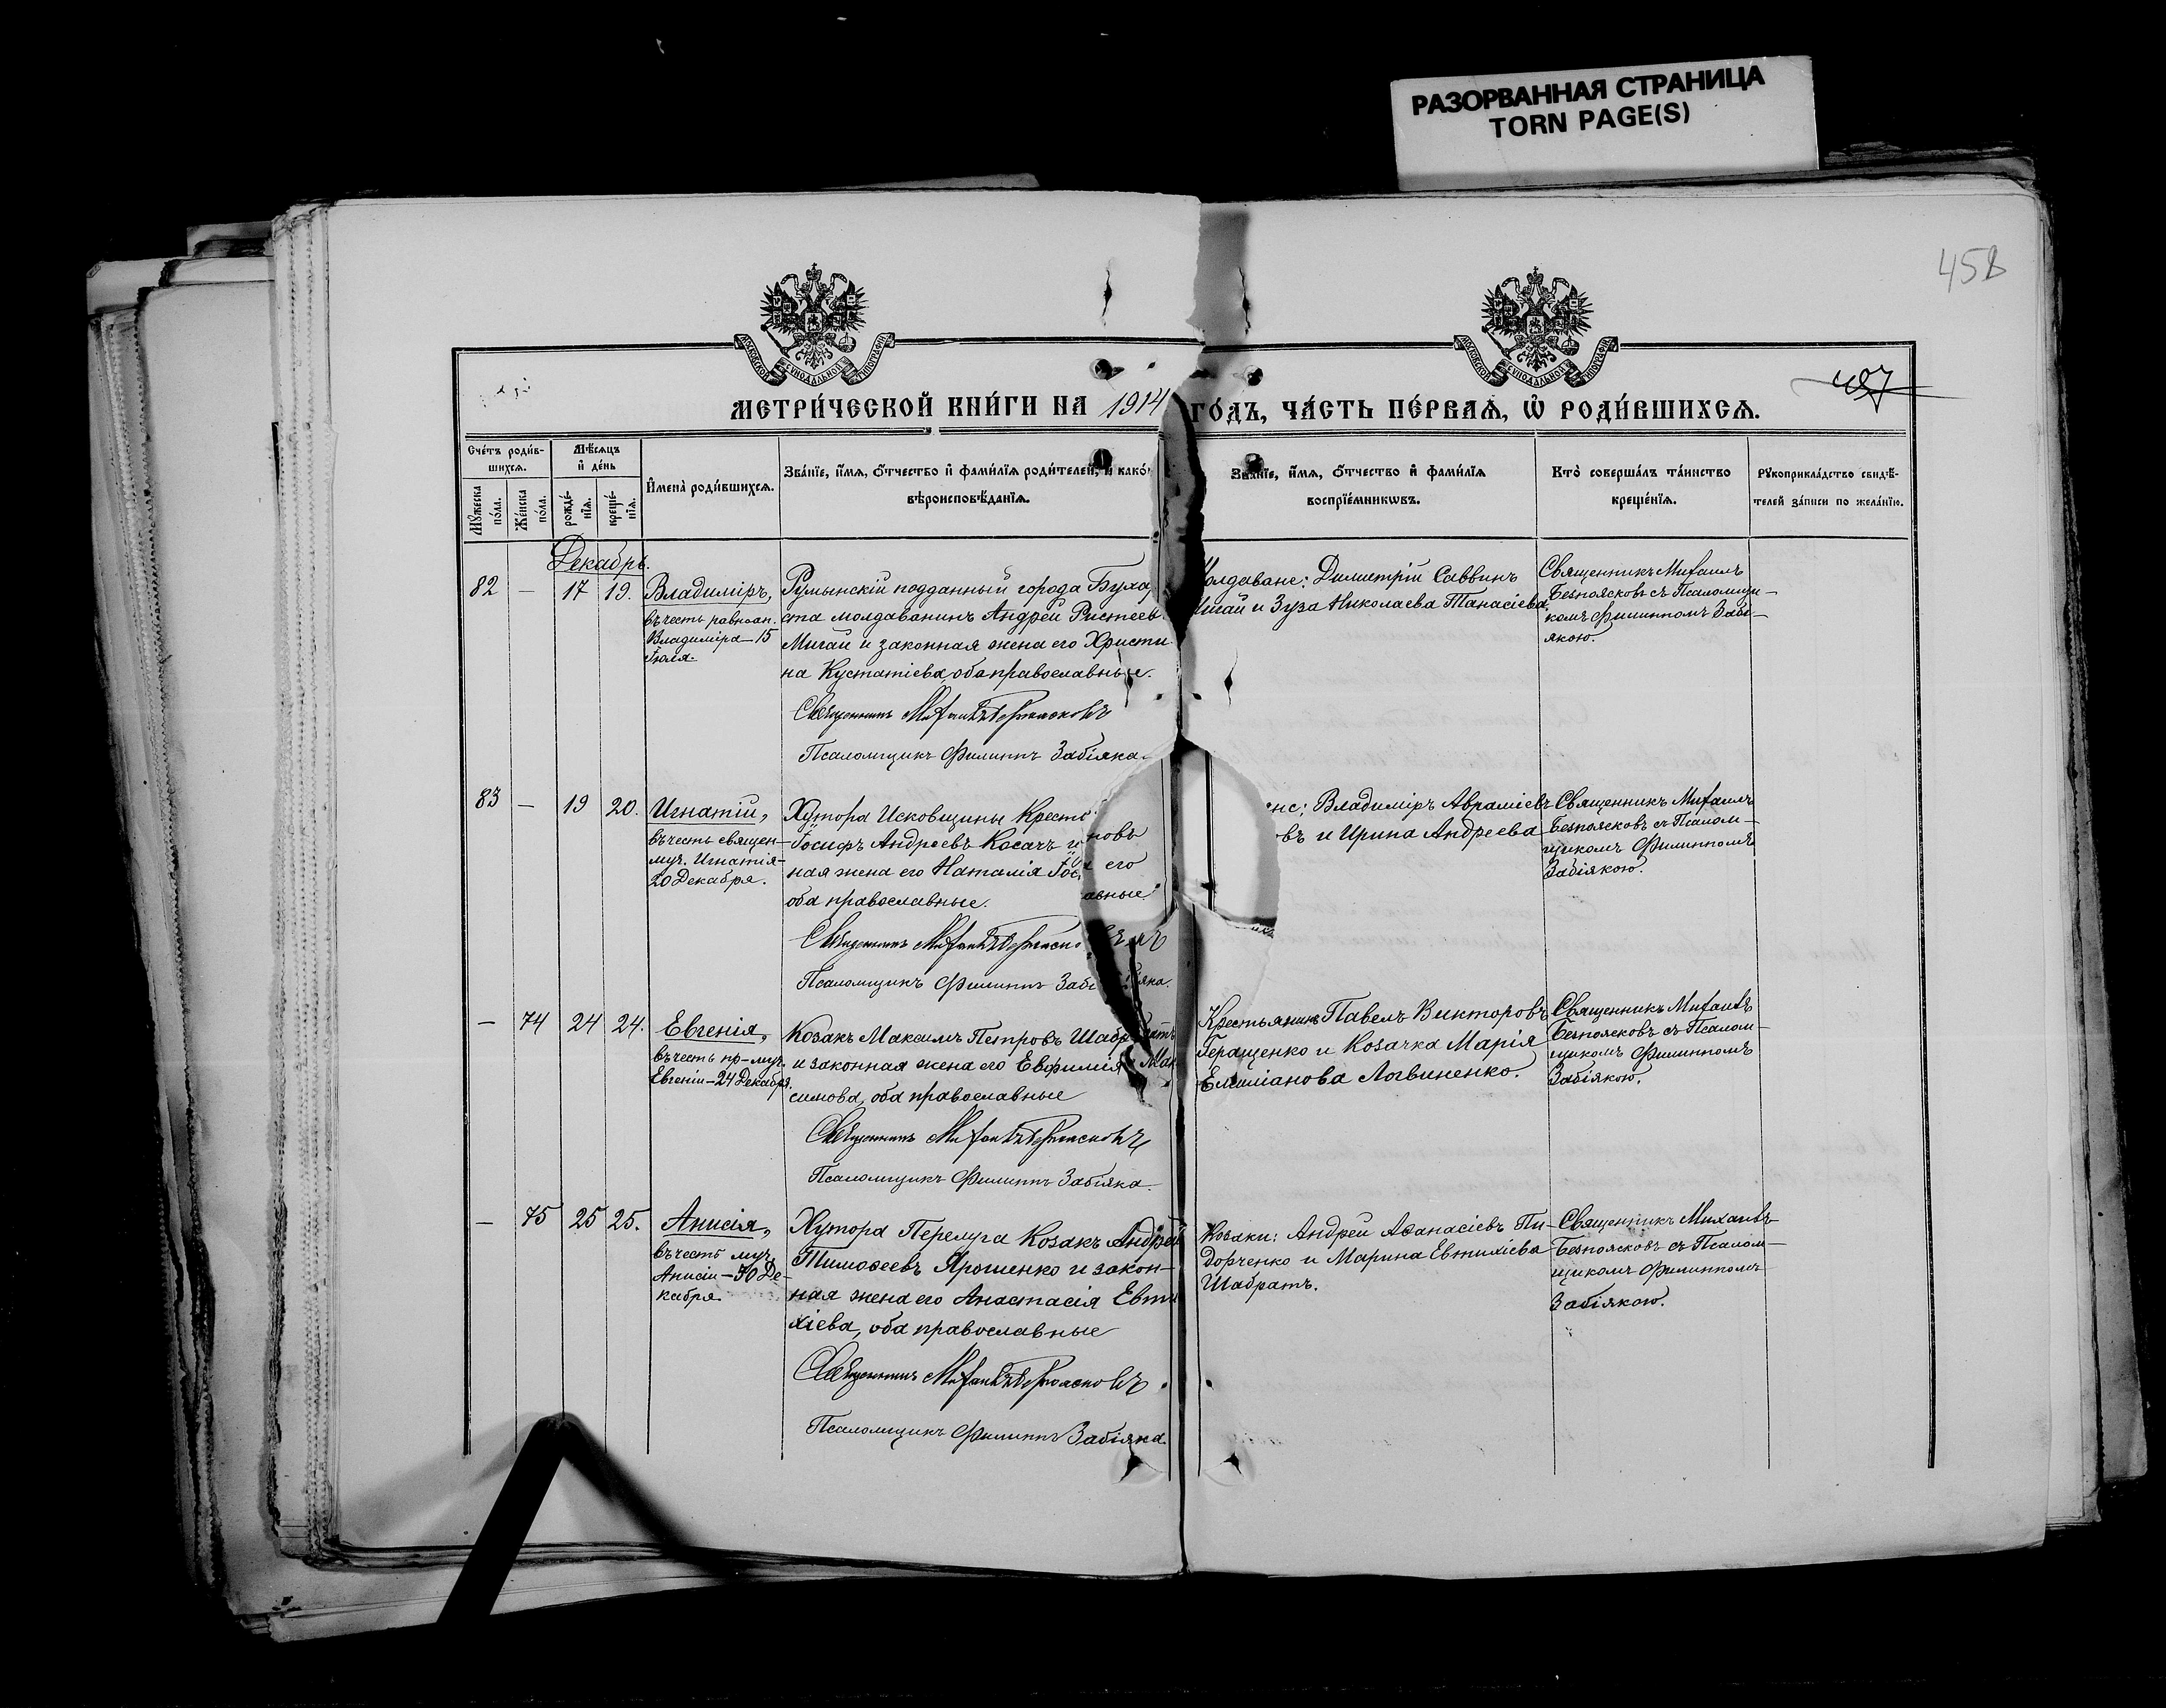 РАЗОРВАННАЯ СТРАНИЦА
TORN PAGE(S)
458
457
МЕТРИ́ЧЕСКОЙ КНИ́ГИ НА 1914 ГО́ДЪ, ЧА́СТЬ ПЕ́РВАѦ, Ѡ҆ РОДИ́ВШИХСѦ.
Сче́тъ роди́в-
шихсѧ.
Мѣ́сѧцъ
и҆ де́нь
Мꙋ́жеска по́ла.
Же́нска по́ла.
рожде́-
нїѧ.
креще́-
нїѧ.
И҆мена̀ роди́вшихсѧ.
Зва́нїе, и҆́мѧ, ѻ҆́тчество и҆ фами́лїѧ роди́телей, и҆ како́
вѣроисповѣ́данїѧ.
Зва́нїе, и҆́мѧ, ѻ҆́тчество и҆ фами́лїѧ
воспрїе́мникѡвъ.
Кто̀ соверша́лъ та́инство
креще́нїѧ.
Рꙋкоприкла́дство свидѣ́-
телей за́писи по жела́нїю.
Декабрь.
82 — 17 19. Владиміръ,
въ честь равноап.
Владиміра — 15
Іюля.
Румынскій подданный города Буха
ста молдаванинъ Андрей Ристеев
Мигай и законная жена его Христи
на Кустатіева, оба православные.
Священникъ Михаилъ Безпоясковъ
Псаломщикъ Филиппъ Забіяка.
олдаване: Димитрій Саввинъ
игай и Зуза Николаева Танасіева.
Священникъ Михаилъ
Безпоясковъ съ Псаломщи-
комъ Филиппомъ Забі-
якою.
83 — 19 20. Игнатій,
въ честь священ-
муч. Игнатія —
20 Декабря.
Хутора Исковщины Кресть
Іосифъ Андреевъ Косачъ и
новъ
ная жена его Наталія Іос
его
оба православные.
авные.
Священникъ Михаилъ Безпояско
Псаломщикъ Филиппъ Забі
яка.
не: Владиміръ Авраміевъ
овъ и Ирина Андреева
Священникъ Михаилъ
Безпоясковъ съ Псалом-
щикомъ Филиппомъ
Забіякою.
— 74 24 24. Евгенія,
въ честь пр-муч.
Евгеніи — 24 Декабря.
Козакъ Максимъ Петровъ Шабратъ
и законная жена его Евфимія Мак
симова, оба православные
Священникъ Михаилъ Безпоясковъ
Псаломщикъ Филиппъ Забіяка.
Крестьянинъ Павелъ Викторовъ
Геращенко и Козачка Марія
Емиліанова Логвиненко.
Священникъ Михаилъ
Безпоясковъ съ Псалом-
щикомъ Филиппомъ
Забіякою.
— 75 25 25. Анисія,
въ честь муч.
Анисіи — 30 Де-
кабря
Хутора Перелуга Козакъ Андрей
Тимоѳеевъ Ярошенко и закон-
ная жена его Анастасія Евти
хіева, оба православные
Священникъ Михаилъ Безпоясковъ
Псаломщикъ Филиппъ Забіяка.
Козаки: Андрей Аѳанасіевъ Пи-
дорченко и Марина Евтихіева
Шабратъ.
Священникъ Михаилъ
Безпоясковъ съ Псалом-
щикомъ Филиппомъ
Забіякою.